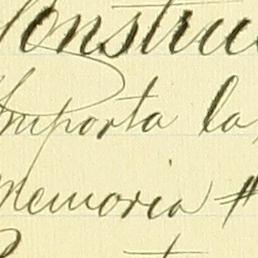 Construc
Importa la
Memoria #